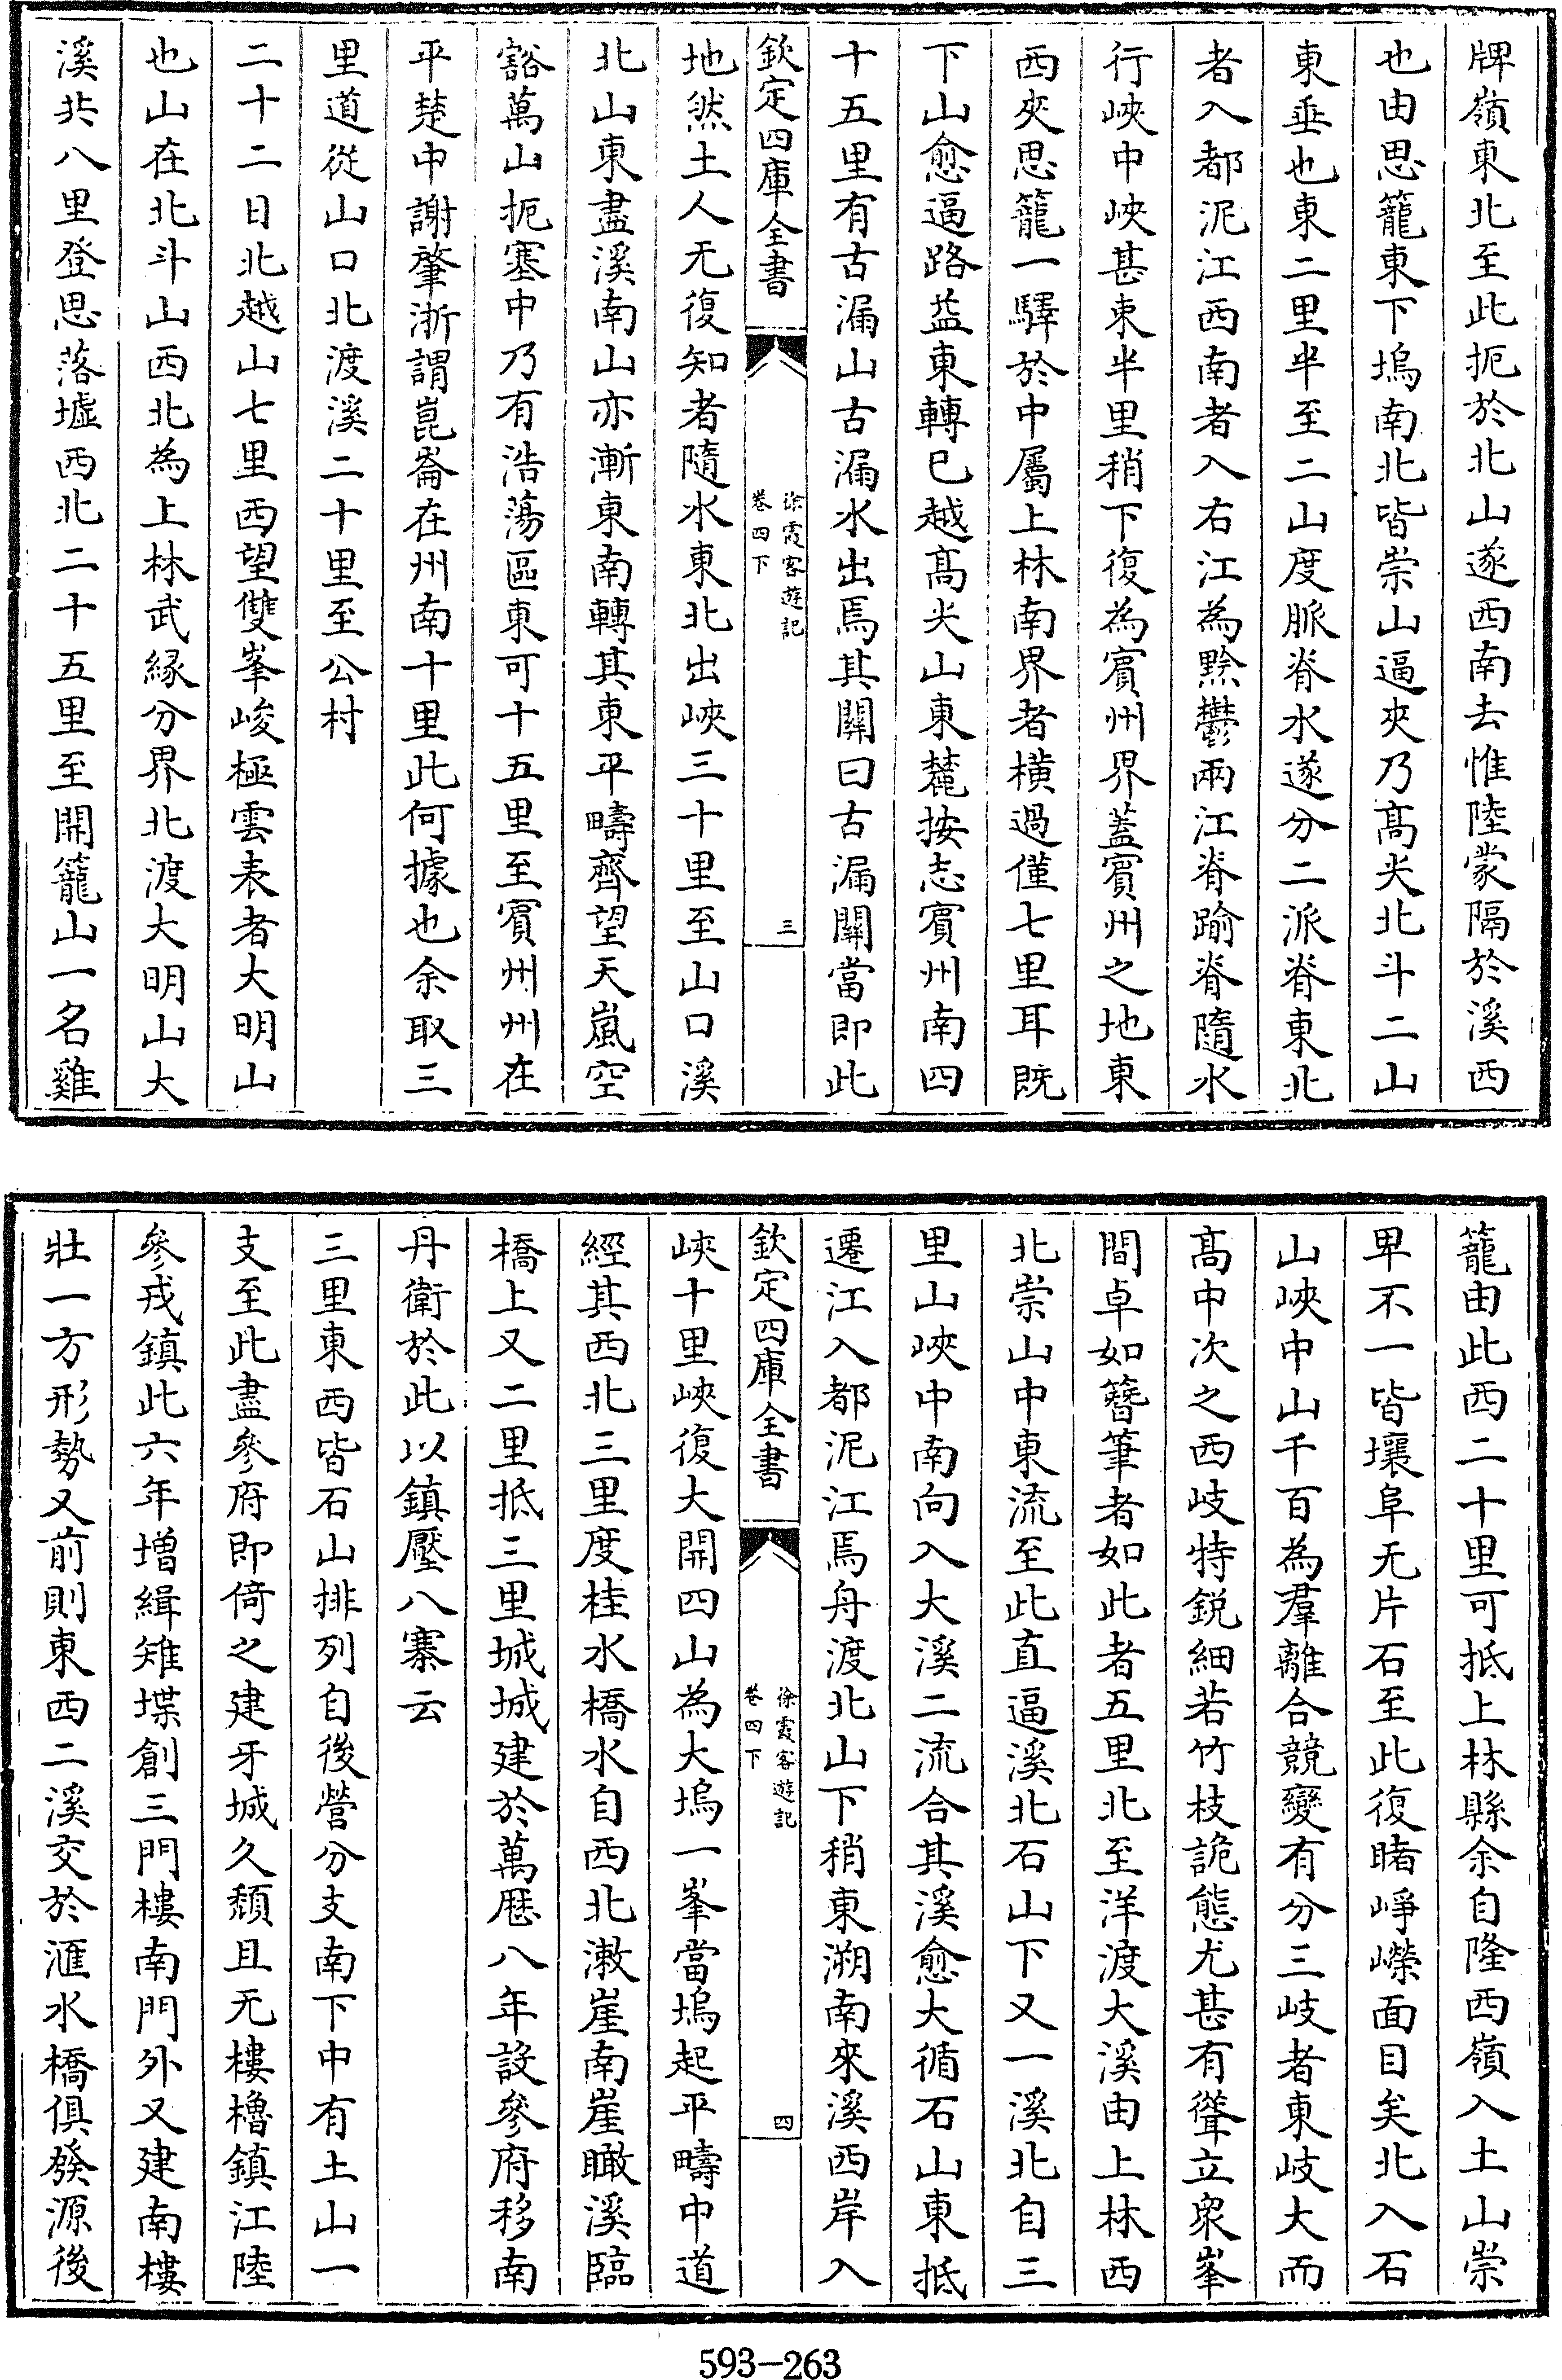 牌嶺東北至此扼於北山遂西南去惟陸蒙隔於溪西
也由思籠東下塢南北皆崇山逼夾乃髙尖北斗二山
東垂也東二里半至二山度脈脊水遂分二派脊東北
者入都泥江西南者入右江為黔鬱兩江脊踰脊隨水
行峽中峽甚東半里稍下復為賓州界蓋賓州之地東
西夾思籠一驛於中屬上林南界者橫過僅七里耳既
下山愈逼路益東轉已越髙尖山東麓按志賓州南四
十五里有古漏山古漏水出焉其關曰古漏關當即此
欽定四庫全書
徐霞客遊記
卷四下
三
地然土人无復知者隨水東北出峽三十里至山口溪
北山東盡溪南山亦漸東南轉其東平疇齊望天嵐空
豁萬山扼塞中乃有浩蕩區東可十五里至賓州州在
平楚中謝肇淛謂崑崙在州南十里此何據也余取三
里道從山口北渡溪二十里至公村
二十二日北越山七里西望雙峯峻極雲表者大明山
也山在北斗山西北為上林武緣分界北渡大明山大
溪共八里登思落墟西北二十五里至開籠山一名雞
籠由此西二十里可抵上林縣余自隆西嶺入土山崇
卑不一皆壤阜无片石至此復睹崢嶸面目矣北入石
山峽中山千百為羣離合競變有分三岐者東岐大而
髙中次之西岐特銳細若竹枝詭態尤甚有聳立衆峯
間卓如簪筆者如此者五里北至洋渡大溪由上林西
北崇山中東流至此直逼溪北石山下又一溪北自三
里山峽中南向入大溪二流合其溪愈大循石山東抵
遷江入都泥江焉舟渡北山下稍東溯南來溪西岸入
欽定四庫全書
徐霞客遊記
卷四下
四
峽十里峽復大開四山為大塢一峯當塢起平疇中道
經其西北三里度桂水橋水自西北潄崖南崖瞰溪臨
橋上又二里抵三里城城建於萬厯八年設參府移南
丹衛於此以鎮壓八寨云
三里東西皆石山排列自後營分支南下中有土山一
支至此盡參府即倚之建牙城久頹且无樓櫓鎮江陸
參戎鎮此六年增緝雉堞創三門樓南門外又建南樓
壯一方形勢又前則東西二溪交於滙水橋俱發源後
593-263